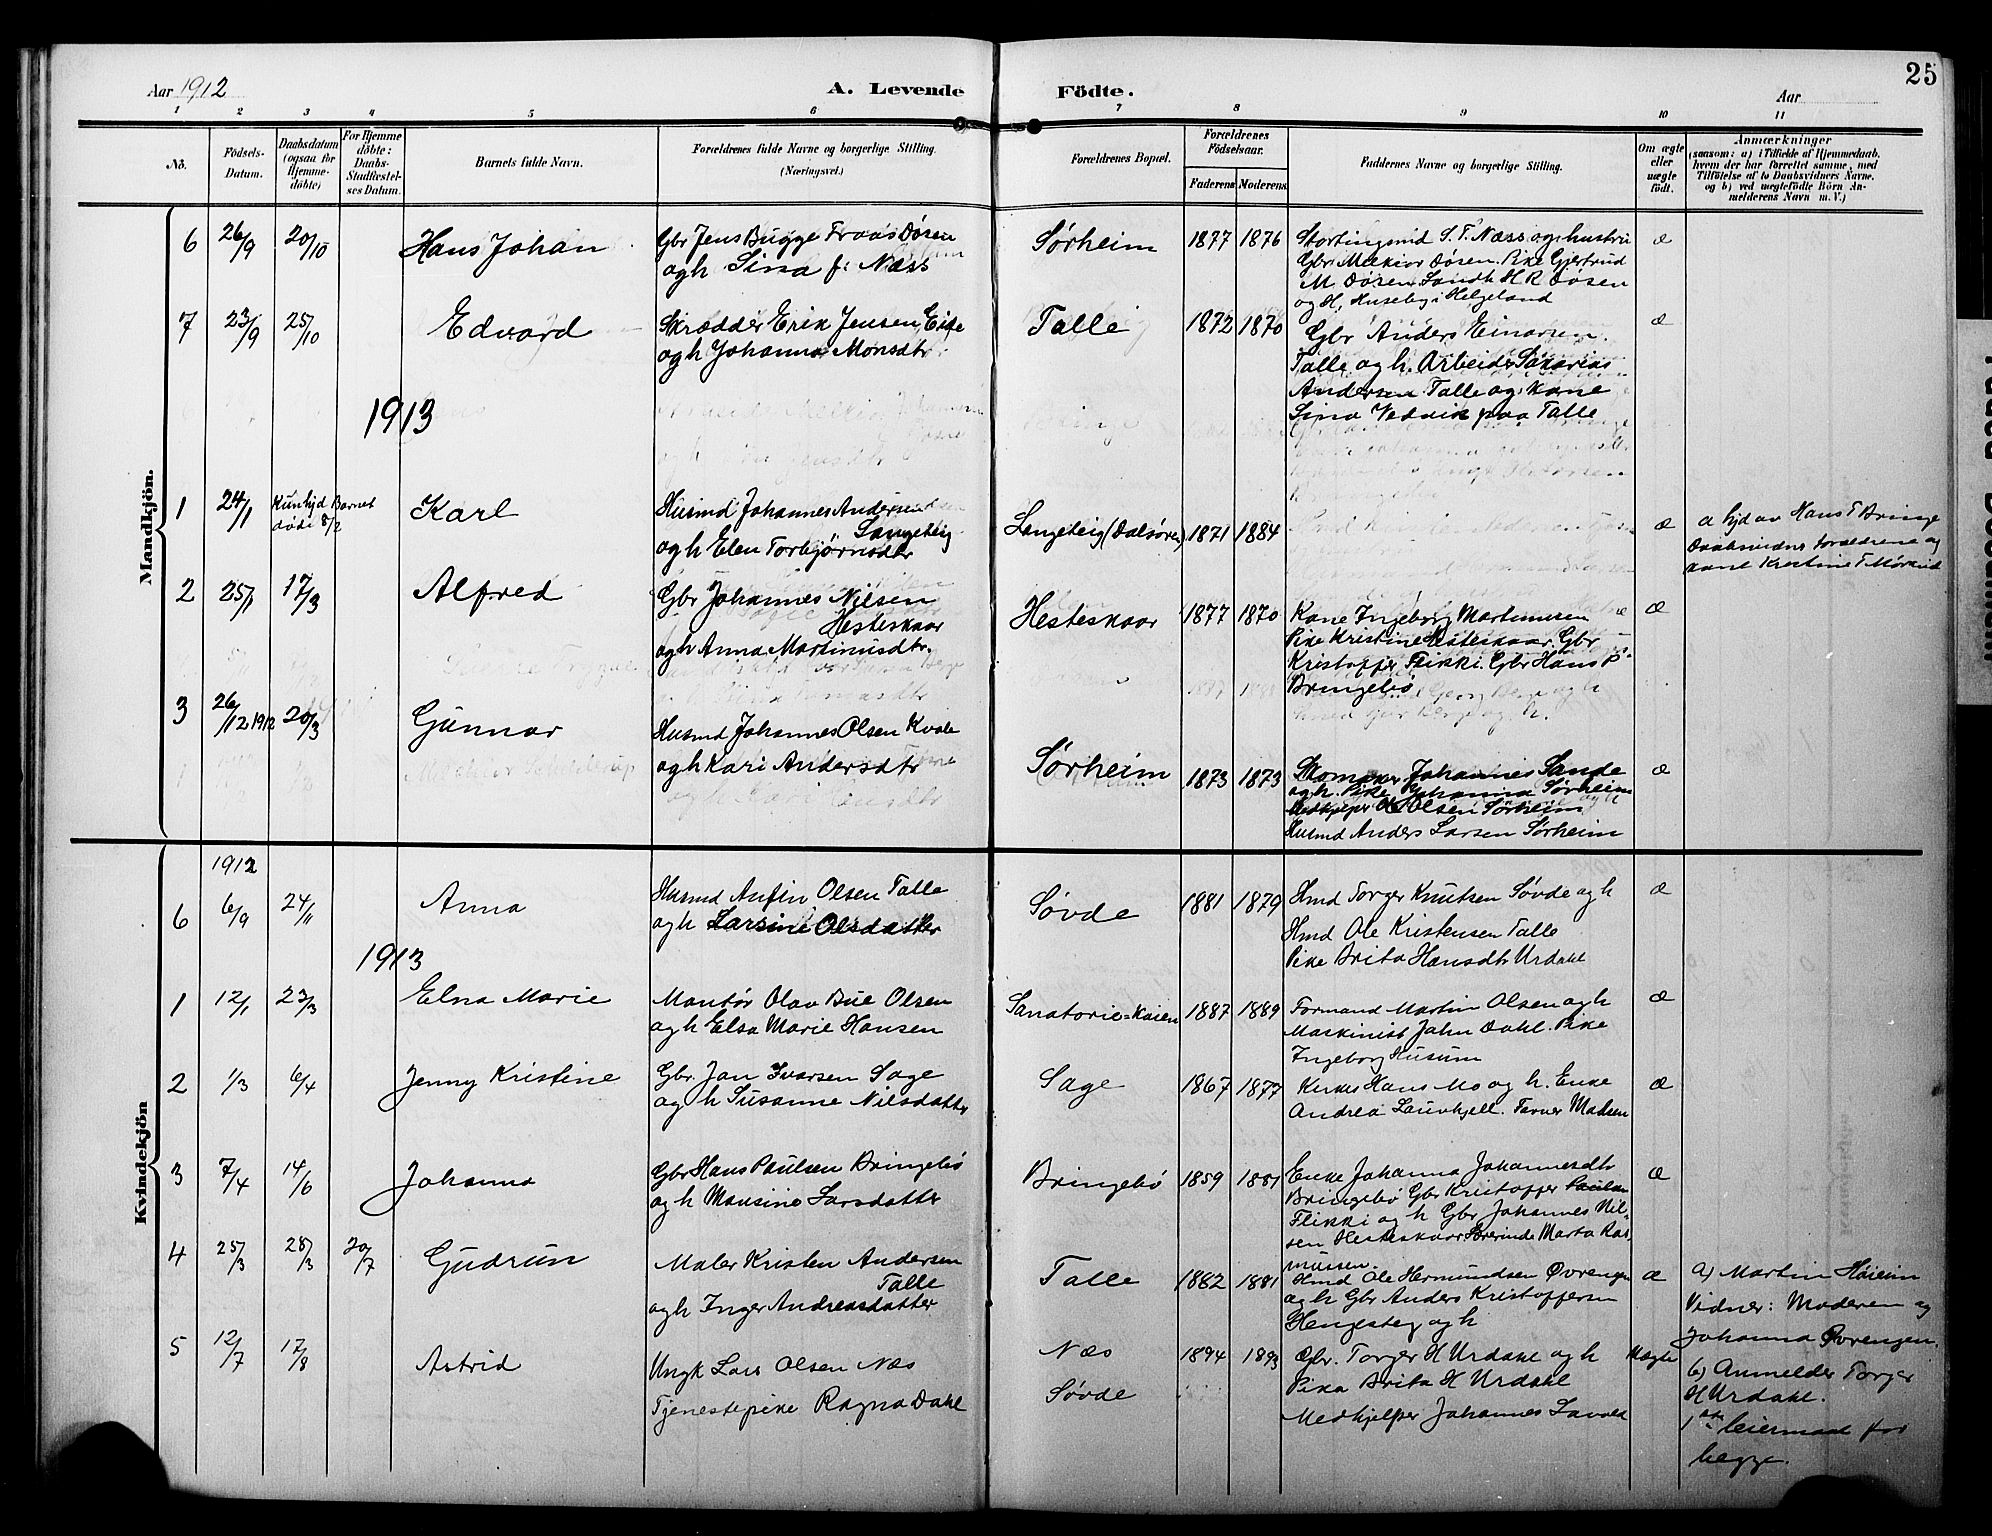 25
Aar 1912
A. Levende Födte.
Aar
1 2 3 4 5 6 7 8 9 10 11
No.
Födsels-
Datum.
Daabsdatum
(ogsaa for
Hjemme-
døbte)
For Hjemme
døbte:
Daabs-
Stadfæstel-
ses Datum.
Barnets fulde Navn.
Forældrenes fulde Navne og borgerlige Stilling.
(Næringsvei.)
Forældrenes Bopæl.
Forældrenes
Födselsaar.
Faderens Moderens
Faddernes Navne og borgerlige Stilling.
Om ægte
eller
uægte
födt.
Anmærkninger
(saasom: a) i Tilfælde af Hjemmedaab,
hvem der har forrettet samme, med
Tilföielse af to Daabsvidners Navne,
og b) ved uægtefödte Börn An-
melderens Navn m. V.)
Mandkjön.
6 26/9 20/10 Hans Johan
Gbr Jens Bugge Fraas Døsen
og h Sina f: Næss
Sørheim 1877 1876
Stortingsmd S. T. Næss og hustru
Gbr Melkior Døsen. Pike Gjertrud
M. Døsen. Landh H R Døsen
og H. Huseby i Helgeland
æ
7 23/9 25/10 Edvard
Skrædder Erik Jensen Eide
og h Johanna Monsdtr
Talle 1872 1870
Gbr Anders Einarsen
Talle og h. Arbeider Sakarias
Andersen Talle og kone
Sina Vedvik paa Talle
æ
1913
1 24/1 Kun hjd Barnet
døde 8/2
Karl
Husmd Johannes Andersen
Langeteig
og h Elen Torbjørnsdtr
Langeteig (Dalsøren) 1871 1884 æ
a. hjd av Hans T Bringe
Daabsvidner forældrene og
kone Kristine T Mørkrid
2 25/1 17/3 Alfred
Gbr Johannes Nilsen
Hesteskaar
og h Anna Martinusdtr.
Hesteskaar 1877 1870
Kone Ingeborg Martinusen
Pike Kristine Hesteskaar. Gbr
Kristoffer Flikki. Gbr Hans P
Bringebø
æ
3 26/12 1912 20/3 Gunnar
Husmd Johannes Olsen Kvale
og h Kari Andersdtr
Sørheim 1873 1873
Skomaker Johannes Sande
og h. Pike Johanna Sørheim
Medhjelper O Olsen Sørheim
Husmd Anders Larsen Sørheim
æ
Kvindekjön
1912
6 6/9 24/11 Anna
Husmd Anfin Olsen Talle
og h Larsine Olsdatter
Søvde 1881 1879
Hmd Torger Knutsen Søvde og h
Hmd Ole Kristensen Talle
Pike Brita Hansdtr Urdahl
æ
1913
1 12/1 23/3 Elna Marie
Montør Olav Bue Olsen
og h Elsa Marie Hansen
Sanatorie=kaien 1887 1889
Formand Martin Olsen og h
Maskinist John Dahl. Pike
Ingeborg Husum
æ
2 1/3 6/4 Jenny Kristine
Gbr. Jon Ivarsen Sage
og h Susanne Nilsdatter
Sage 1867 1877
Hans Mo og h. Enke
Andrea Lauvhjell. Madsen
æ
3 7/4 14/6 Johanna
Gbr Hans Paulsen Bringebø
og h Monsine Larsdatter
Bringebø 1859 1881
Enke Johanna Johannesdtr
Bringebø Gbr Kristoffer Paulsen
Flikki og h Gbr Johannes Nil-
sen Hesteskaar Lærerinde Marta Ras
mussen.
æ
4 25/3 28/3 20/7 Gudrun
Maler Kristen Andersen
Talle
og h Inger Andreasdatter
Talle 1882 1881
Hmd Ole Hermundsen Øvrengen
og h Gbr Anders Kristoffersen
Hengesteg og h
æ
a) Martin Høiheim
Vidner: Moderen og
Johanna Øvrengen.
5 12/7 17/8 Astrid
Ungk Lars Olsen Næs
Tjenestepike Ragna Dahl
Næs
Søvde
1894 1893
Gbr. Torger H Urdahl og h
Pike Brita H Urdahl
Medhjelper Johannes Lavold
Uægte
b) Anmelder Torger
H Urdahl.
1ste leiermaal for
begge.